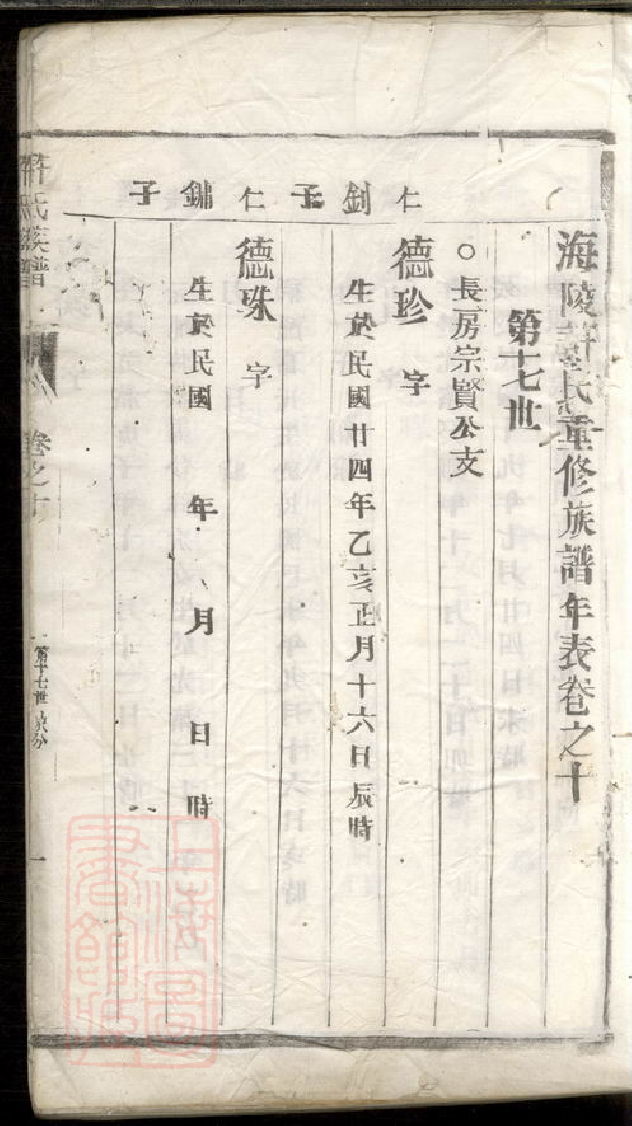 海陵許氏重修族譜年表卷之十
第十七世
○長房宗賢公支
仁釗子
德珍 字
生於民國廿四年乙亥正月十六日辰時
仁鏽子
德珠 字
生於民國 年 月 日 時
許氏族譜 卷之十
第十七世
一
上海圖書館藏